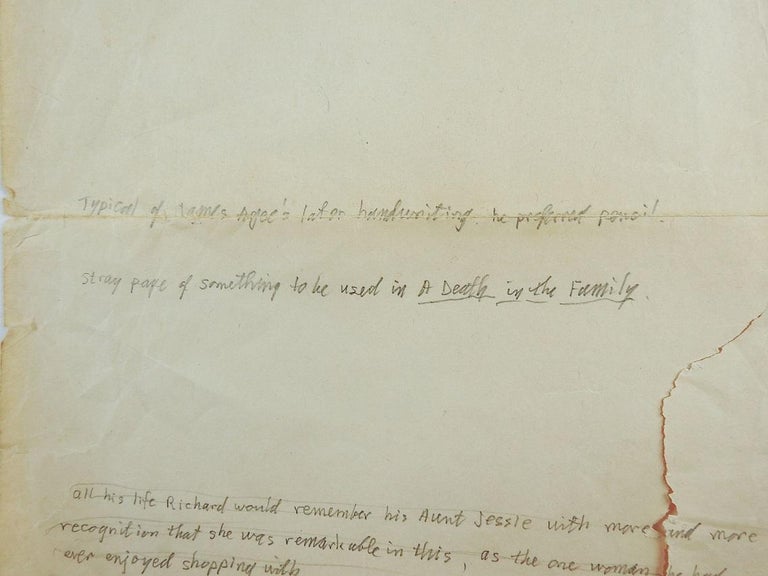 Typical of James Agee's later handwriting. he preferred pencil.
Stray page of something to be used in A Death in the Family.
all his life Richard would remember his Aunt Jessie with more and more
recognition that she was remarkable in this, as the one woman he had
ever enjoyed shopping with